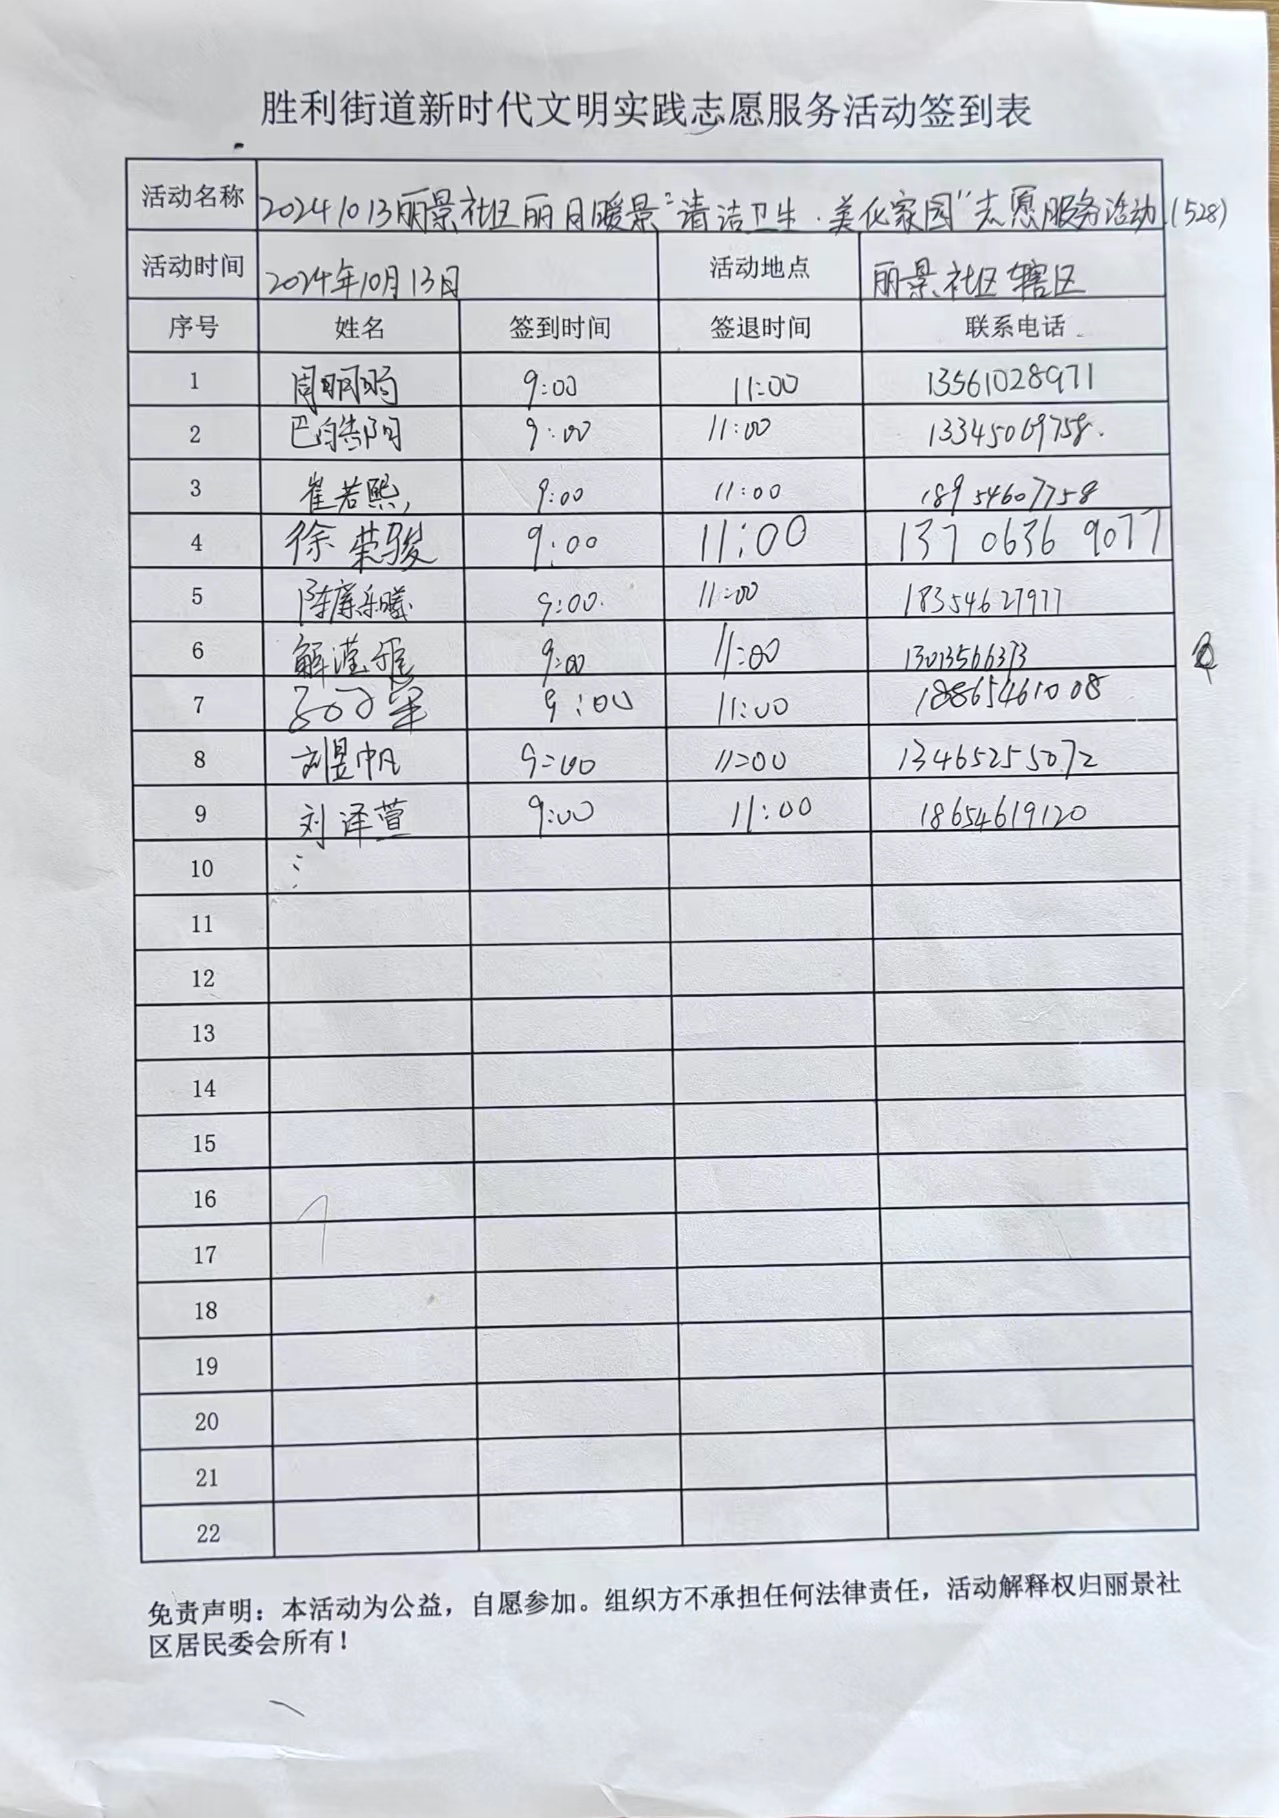 胜利街道新时代文明实践志愿服务活动签到表
活动名称 20241013丽景社区丽日暖景"清洁卫生·美化家园"志愿服务活动(528)
活动时间 2024年10月13日 活动地点 丽景社区辖区
序号 姓名 签到时间 签退时间 联系电话
1 9:00 11:00 13561028971
2 9:00 11:00 13345069758.
3 崔若熙, 9:00 11:00 18954607758
4 徐荣骏 9:00 11:00 13706369077
5 9:00. 11:00 18354627977
6 9:00 11:00
7 9:00 11:00 18865461008
8 刘昱帆 9:00 11:00 13465255072
9 刘泽萱 9:00 11:00 18654619120
10
11
12
13
14
15
16
17
18
19
20
21
22
免责声明：本活动为公益，自愿参加。组织方不承担任何法律责任，活动解释权归丽景社
区居民委会所有！